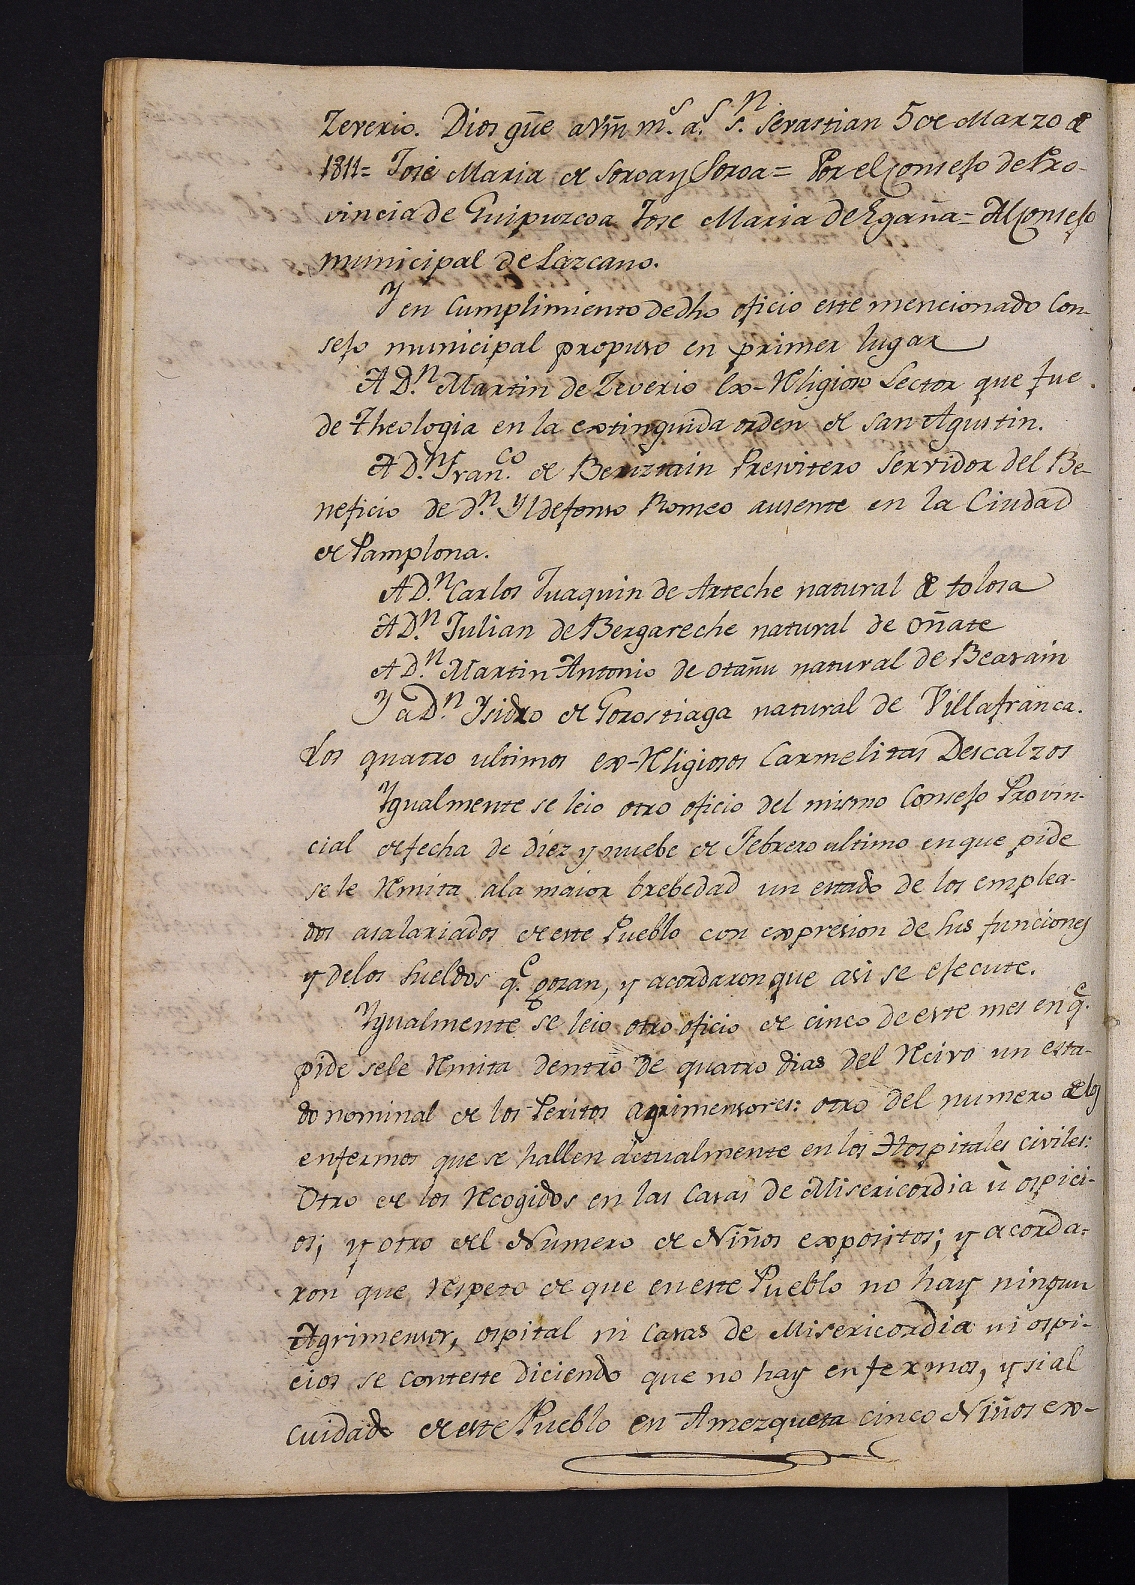 Zeverio. Dios gũe a Vm̃ m.s a.s S.n Sevastian 5 de Marzo de
1811= José Maria de Soroa y Soroa= Por el Consejo de Pro-
vincia de Guipuzcoa Jose Maria de Egaña= Al Consejo
municipal de Lazcano.
Y en Cumplimiento de dho oficio este mencionado Con-
sejo municipal propuso en primer lugar
A D.n Martin de Zeverio Ex-Religioso Lector que fue
de Theologia en la extinguida orden de San Agustin.
A D.n Fran.co de Beriztain Presvitero Servidor del Be-
neficio de D.n Yldefonso Romeo ausente en la Ciudad
de Pamplona.
A D.n Carlos Juaquin de Arteche natural de tolosa
A D.n Julian de Bergareche natural de oñate
A D.n Martin Antonio de otañu natural de Beasain
Y a D.n Isidro de Gorostiaga natural de Villafranca.
Los quatro ultimos ex-Religiosos Carmelitas Descalzos
Igualmente se leio otro oficio del mismo Consejo Provin-
cial de fecha de diez y nuebe de Febrero ultimo en que pide
se le Remita ala maior brebedad un estado de los emplea-
dos asalariados de este Pueblo con expresion de sus funciones
y delos sueldos q.e gozan, y acordaron que asi se efecute.
Igualmente se leio otro oficio de cinco de este mes en q.e
pide sele Remita dentro de quatro dias del Recivo un esta-
do nominal de los Peritos agrimensores: otro del numero de los
enfermos que se hallen actualmente en los Hospitales civiles:
Otro de los Recogidos en las Casas de Misericordia ù ospici-
os; y otro del Numero de Niños expositos; y acorda-
ron que Respeto de que en este Pueblo no hay ningun
Agrimensor, ospital ni Casas de Misericordia ni ospi-
cios se conteste diciendo que no hay enfermos, y si al
cuidado de este Pueblo en Amezqueta cinco Niños ex-